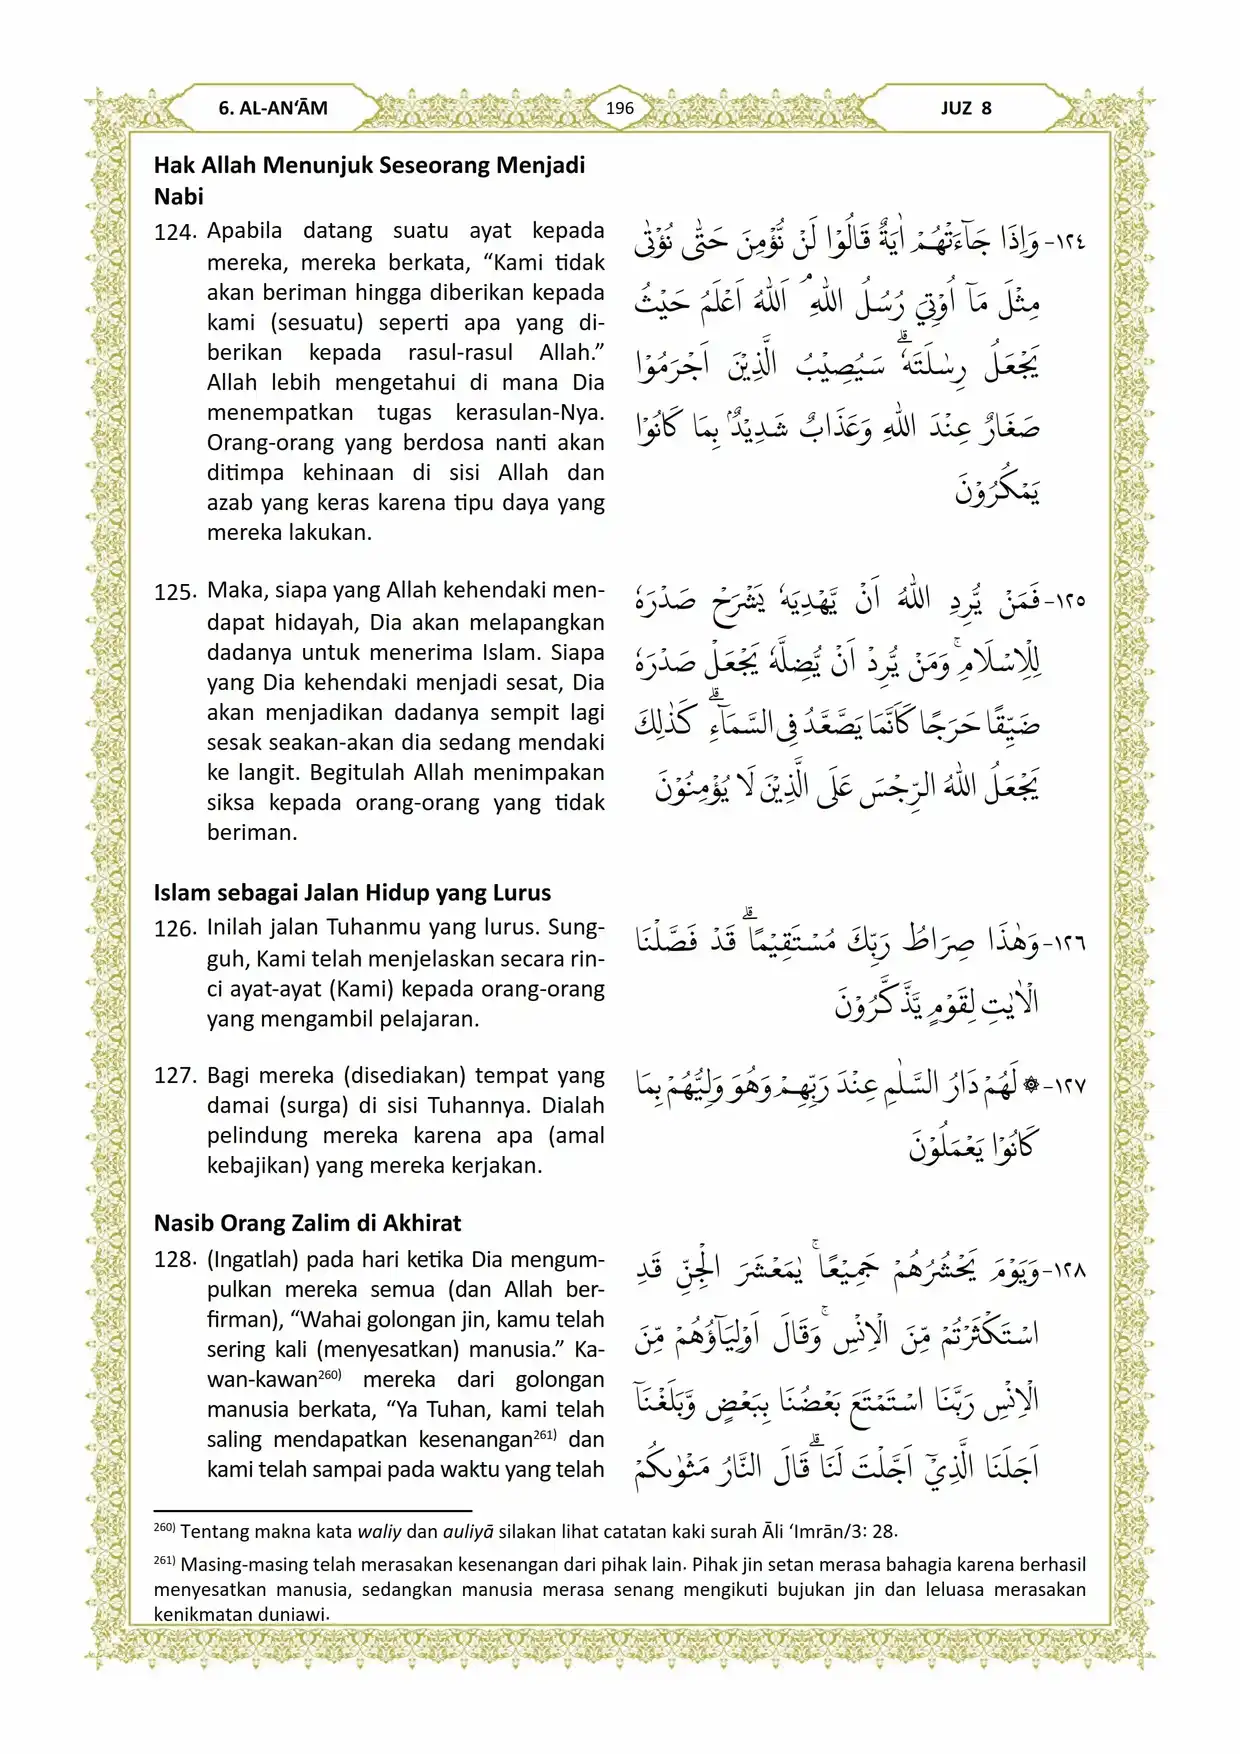 6. AL-AN‘ĀM
196
JUZ 8
Hak Allah Menunjuk Seseorang Menjadi
Nabi
124. Apabila datang suatu ayat kepada
mereka, mereka berkata, “Kami tidak
akan beriman hingga diberikan kepada
kami (sesuatu) seperti apa yang di-
berikan kepada rasul-rasul Allah.”
Allah lebih mengetahui di mana Dia
menempatkan tugas kerasulan-Nya.
Orang-orang yang berdosa nanti akan
ditimpa kehinaan di sisi Allah dan
azab yang keras karena tipu daya yang
mereka lakukan.
١٢٤- وَاِذَا جَاۤءَتْهُمْ اٰيَةٌ قَالُوْا لَنْ نُّؤْمِنَ حَتّٰى نُؤْتٰى
مِثْلَ مَآ اُوْتِيَ رُسُلُ اللّٰهِ ۘ اَللّٰهُ اَعْلَمُ حَيْثُ
يَجْعَلُ رِسٰلَتَهٗۗ سَيُصِيْبُ الَّذِيْنَ اَجْرَمُوْا
صَغَارٌ عِنْدَ اللّٰهِ وَعَذَابٌ شَدِيْدٌۢ بِمَا كَانُوْا
يَمْكُرُوْنَ
125. Maka, siapa yang Allah kehendaki men-
dapat hidayah, Dia akan melapangkan
dadanya untuk menerima Islam. Siapa
yang Dia kehendaki menjadi sesat, Dia
akan menjadikan dadanya sempit lagi
sesak seakan-akan dia sedang mendaki
ke langit. Begitulah Allah menimpakan
siksa kepada orang-orang yang tidak
beriman.
١٢٥- فَمَنْ يُّرِدِ اللّٰهُ اَنْ يَّهْدِيَهٗ يَشْرَحْ صَدْرَهٗ
لِلْاِسْلَامِۚ وَمَنْ يُّرِدْ اَنْ يُّضِلَّهٗ يَجْعَلْ صَدْرَهٗ
ضَيِّقًا حَرَجًا كَاَنَّمَا يَصَّعَّدُ فِى السَّمَاۤءِۗ كَذٰلِكَ
يَجْعَلُ اللّٰهُ الرِّجْسَ عَلَى الَّذِيْنَ لَا يُؤْمِنُوْنَ
Islam sebagai Jalan Hidup yang Lurus
126. Inilah jalan Tuhanmu yang lurus. Sung-
guh, Kami telah menjelaskan secara rin-
ci ayat-ayat (Kami) kepada orang-orang
yang mengambil pelajaran.
١٢٦- وَهٰذَا صِرَاطُ رَبِّكَ مُسْتَقِيْمًاۗ قَدْ فَصَّلْنَا
الْاٰيٰتِ لِقَوْمٍ يَّذَّكَّرُوْنَ
127. Bagi mereka (disediakan) tempat yang
damai (surga) di sisi Tuhannya. Dialah
pelindung mereka karena apa (amal
kebajikan) yang mereka kerjakan.
١٢٧- ۞ لَهُمْ دَارُ السَّلٰمِ عِنْدَ رَبِّهِمْ وَهُوَ وَلِيُّهُمْ بِمَا
كَانُوْا يَعْمَلُوْنَ
Nasib Orang Zalim di Akhirat
128. (Ingatlah) pada hari ketika Dia mengum-
pulkan mereka semua (dan Allah ber-
firman), “Wahai golongan jin, kamu telah
sering kali (menyesatkan) manusia.” Ka-
wan-kawan260) mereka dari golongan
manusia berkata, “Ya Tuhan, kami telah
saling mendapatkan kesenangan261) dan
kami telah sampai pada waktu yang telah
١٢٨- وَيَوْمَ يَحْشُرُهُمْ جَمِيْعًاۚ يٰمَعْشَرَ الْجِنِّ قَدِ
اسْتَكْثَرْتُمْ مِّنَ الْاِنْسِ ۚ وَقَالَ اَوْلِيَاۤؤُهُمْ مِّنَ
الْاِنْسِ رَبَّنَا اسْتَمْتَعَ بَعْضُنَا بِبَعْضٍ وَّبَلَغْنَآ
اَجَلَنَا الَّذِيْٓ اَجَّلْتَ لَنَا ۗ قَالَ النَّارُ مَثْوٰىكُمْ
260) Tentang makna kata waliy dan auliyā silakan lihat catatan kaki surah Āli ‘Imrān/3: 28.
261) Masing-masing telah merasakan kesenangan dari pihak lain. Pihak jin setan merasa bahagia karena berhasil
menyesatkan manusia, sedangkan manusia merasa senang mengikuti bujukan jin dan leluasa merasakan
kenikmatan duniawi.